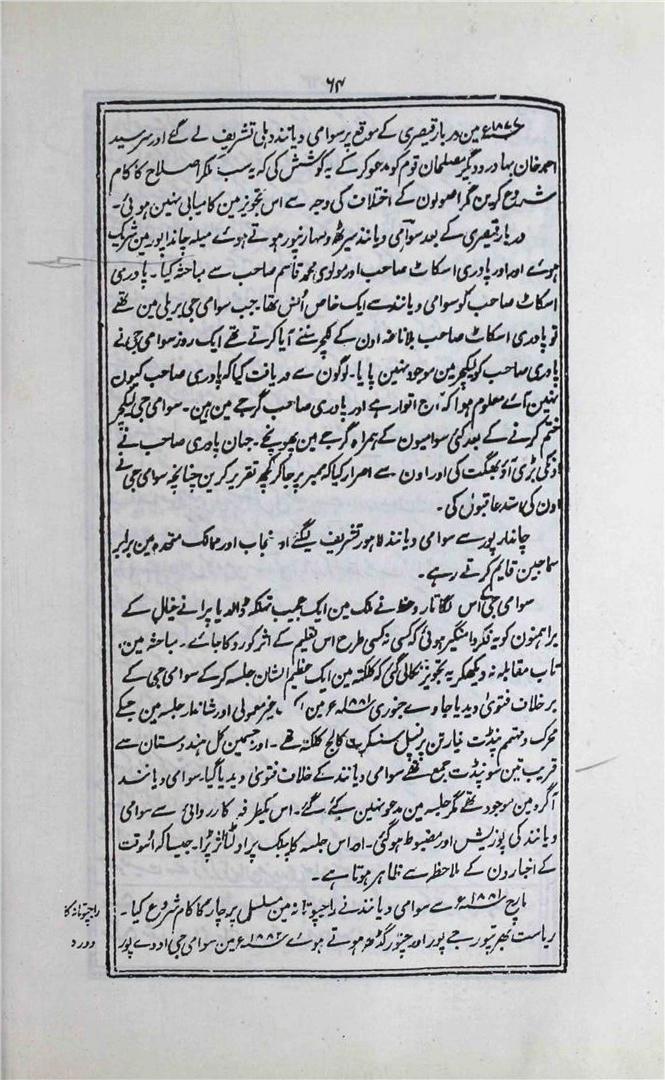 ۶۴
۱۸۷۷ء مین دربار قیصری کے موقع پر سوامی دیانند دہلی تشریف لے گئے اور سر سید
احمد خان بہادر و دیگر مسلمان قوم کو مدعو کر کے یہ کوشش کی کہ یہ سب ملکر اصلاح کا کام
شروع کرین مگر اصولون کے اختلاف کی وجہ سے اس تجویز مین کامیابی نہین ہوئی۔
دربار قیصری کے بعد سوامی دیانند میرٹھ و سہارنپور ہوتے ہوئے میلہ چاندا پور مین شریک
ہوئے اور اور پادری اسکاٹ صاحب اور مولوی محمد قاسم صاحب سے مباحثہ کیا۔ پادری
اسکاٹ صاحب کو سوامی دیانند سے ایک خاص اُنس تھا۔ جب سوامی جی بریلی مین تھے
تو پادری اسکاٹ صاحب بلا ناغہ اون کے لکچر سننے آیا کرتے تھے ایک روز سوامی جی نے
پادری صاحب کو لیکچر مین موجود نہین پایا۔ لوگون سے دریافت کیا کہ پادری صاحب کیون
نہین آئے معلوم ہوا کہ آج اتوار ہے اور پادری صاحب گرجے مین ہین۔ سوامی جی لیکچر
ختم کرنے کے بعد کئی سوامیون کے ہمراہ گرجے مین پہونچے۔ جہان پادری صاحب نے
اونکی بڑی آؤ بھگت کی اور اون سے اصرار کیا کہ ممبر پر جا کر کچھ تقریر کرین چنانچہ سوامی جی نے
اون کی استدعا قبول کی۔
چاندا پور سے سوامی دیانند لاہور تشریف لیگئے اور پنجاب اور ممالک متحدہ مین برابر
سماجین قایم کرتے رہے۔
سوامی جی کے اس لگاتار وعظ نے ملک مین ایک عجیب تہلکہ ڈالدیا پرانے خیال کے
براہمنون کو یہ فکر دامنگیر ہوئی کہ کسی نہ کسی طرح اس تعلیم کے اثر کو روکا جائے۔ مباحثہ مین
تاب مقابلہ نہ دیکھکر یہ تجویز نکالی گئی کہ کلکتہ مین ایک عظیم الشان جلسہ کر کے سوامی جی کے
برخلاف فتویٰ دیدیا جاوے جنوری ۱۸۸۱ء مین ایک غیر معمولی اور شاندار جلسہ مین جسکے
محرک و مہتمم پنڈت نیارتن پرنسپل سنسکرت کالج کلکتہ تھے۔ اور جسمین کل ہندوستان سے
قریب تین سو پنڈت جمع تھے سوامی دیانند کے خلاف فتویٰ دیدیا گیا۔ سوامی دیانند
آگرہ مین موجود تھے مگر جلسہ مین مدعو نہین کئے گئے۔ اس یکطرفہ کارروائی سے سوامی
دیانند کی پوزیشن اور مضبوط ہوگئی۔ اور اس جلسہ کا پبلک پر اولٹا اثر پڑا۔ جیسا کہ اُسوقت
کے اخبارون کے ملاحظہ سے ظاہر ہوتا ہے۔
مارچ ۱۸۸۱ء سے سوامی دیانند نے راجپوتانہ مین مسلسل پرچار کا کام شروع کیا۔
ریاست بھرتپور جے پور اور چتور گڈھ ہوتے ہوئے ۱۸۸۲ء مین سوامی جی اودے پور
راجپوتانہ کا
دورہ